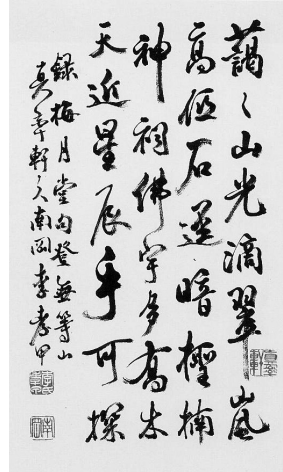 藹々山光滴翠嵐
高低石逕暗檉楠
神祠佛宇多高木
天近星辰手可探
錄梅月堂句登無等山
軒 南岡 李孝甲